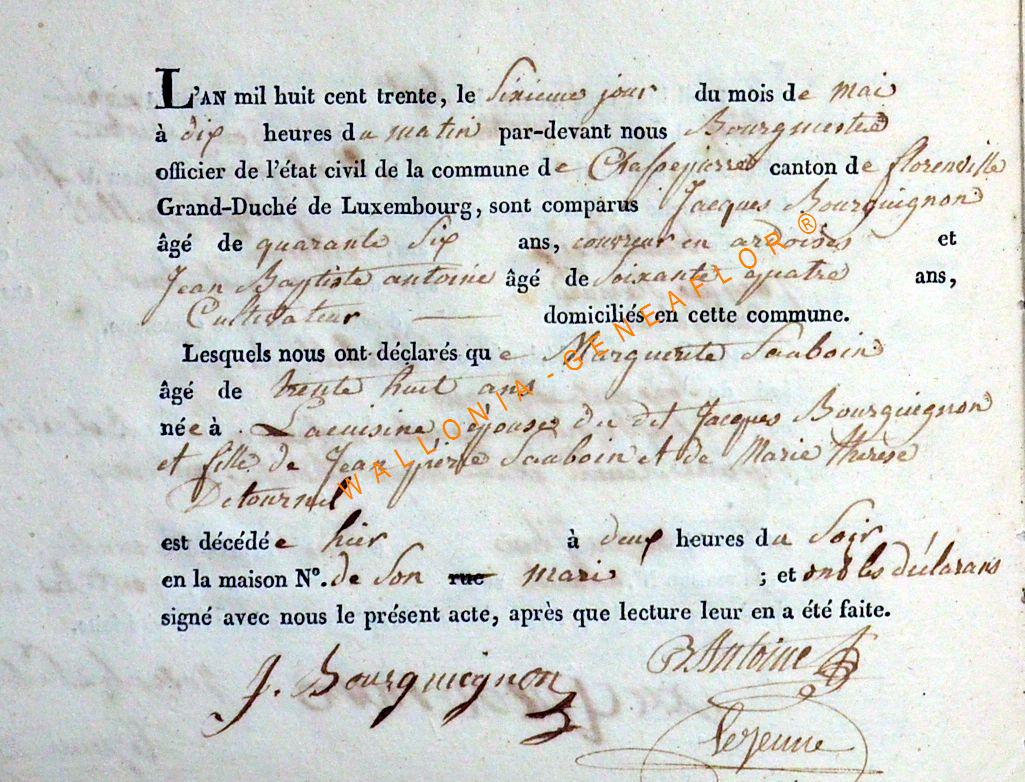 L'AN mil huit cent trente, le Sixieme jour du mois de mai
à dix heures du matin par-devant nous Bourgmestre
officier de l'état civil de la commune de Chassepierre canton de florenville
Grand-Duché de Luxembourg, sont comparus Jacques Bourguignon
âgé de quarante Six ans, couvreur en ardoises et
Jean Baptiste antoine âgé de Soixante quatre ans,
Cultivateur domiciliés en cette commune.
Lesquels nous ont déclarés que Marguerite Sauboin
âgé de trente huit ans
née à Lacuisine épouse du dit Jacques Bourguignon
et fille de Jean pierre Sauboin et de Marie thérèse
Detournel
est décédée hier à deux heures du Soir
en la maison N°. de Son rue mari ; et ont les déclarans
signé avec nous le présent acte, après que lecture leur en a été faite.
J. Bourguignon
B Antoine
Lejeune
WALLONIA - GENEAFLOR ®